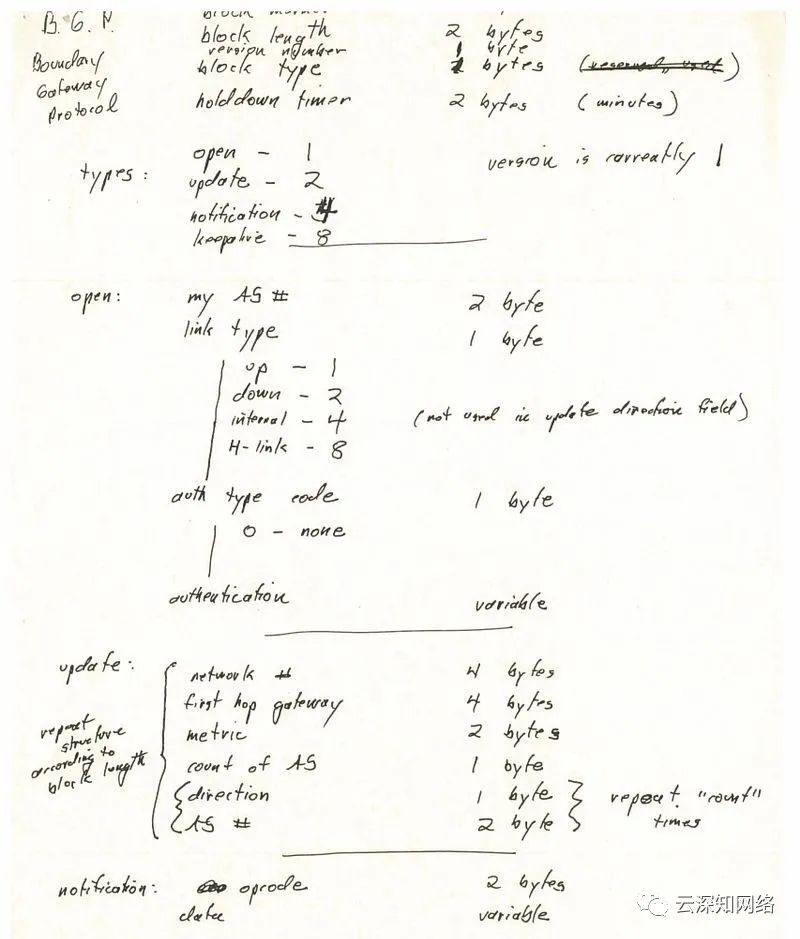 B.G.P.
block length 2 bytes
version number 1 byte
Boundary block type 2 bytes
Gateway
Protocol holddown timer 2 bytes (minutes)
types: open - 1 version is currently 1
update - 2
notification - 4
keepalive - 8
open: my AS # 2 byte
link type 1 byte
up - 1
down - 2
internal - 4 (not used in update direction field)
H-link - 8
auth type code 1 byte
0 - none
authentication variable
update: network # 4 bytes
first hop gateway 4 bytes
metric 2 bytes
count of AS 1 byte
direction 1 byte
AS # 2 byte
repeat structure according to block length
repeat "count" times
notification: opcode 2 bytes
data variable
云深知网络